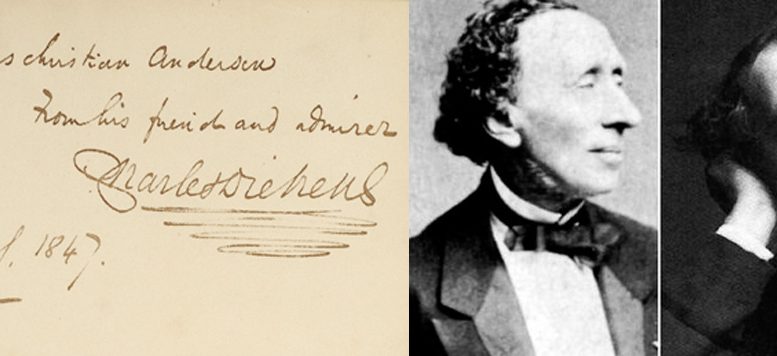 s christian Andersen
From his friend and admirer
Charles Dickens
1847.